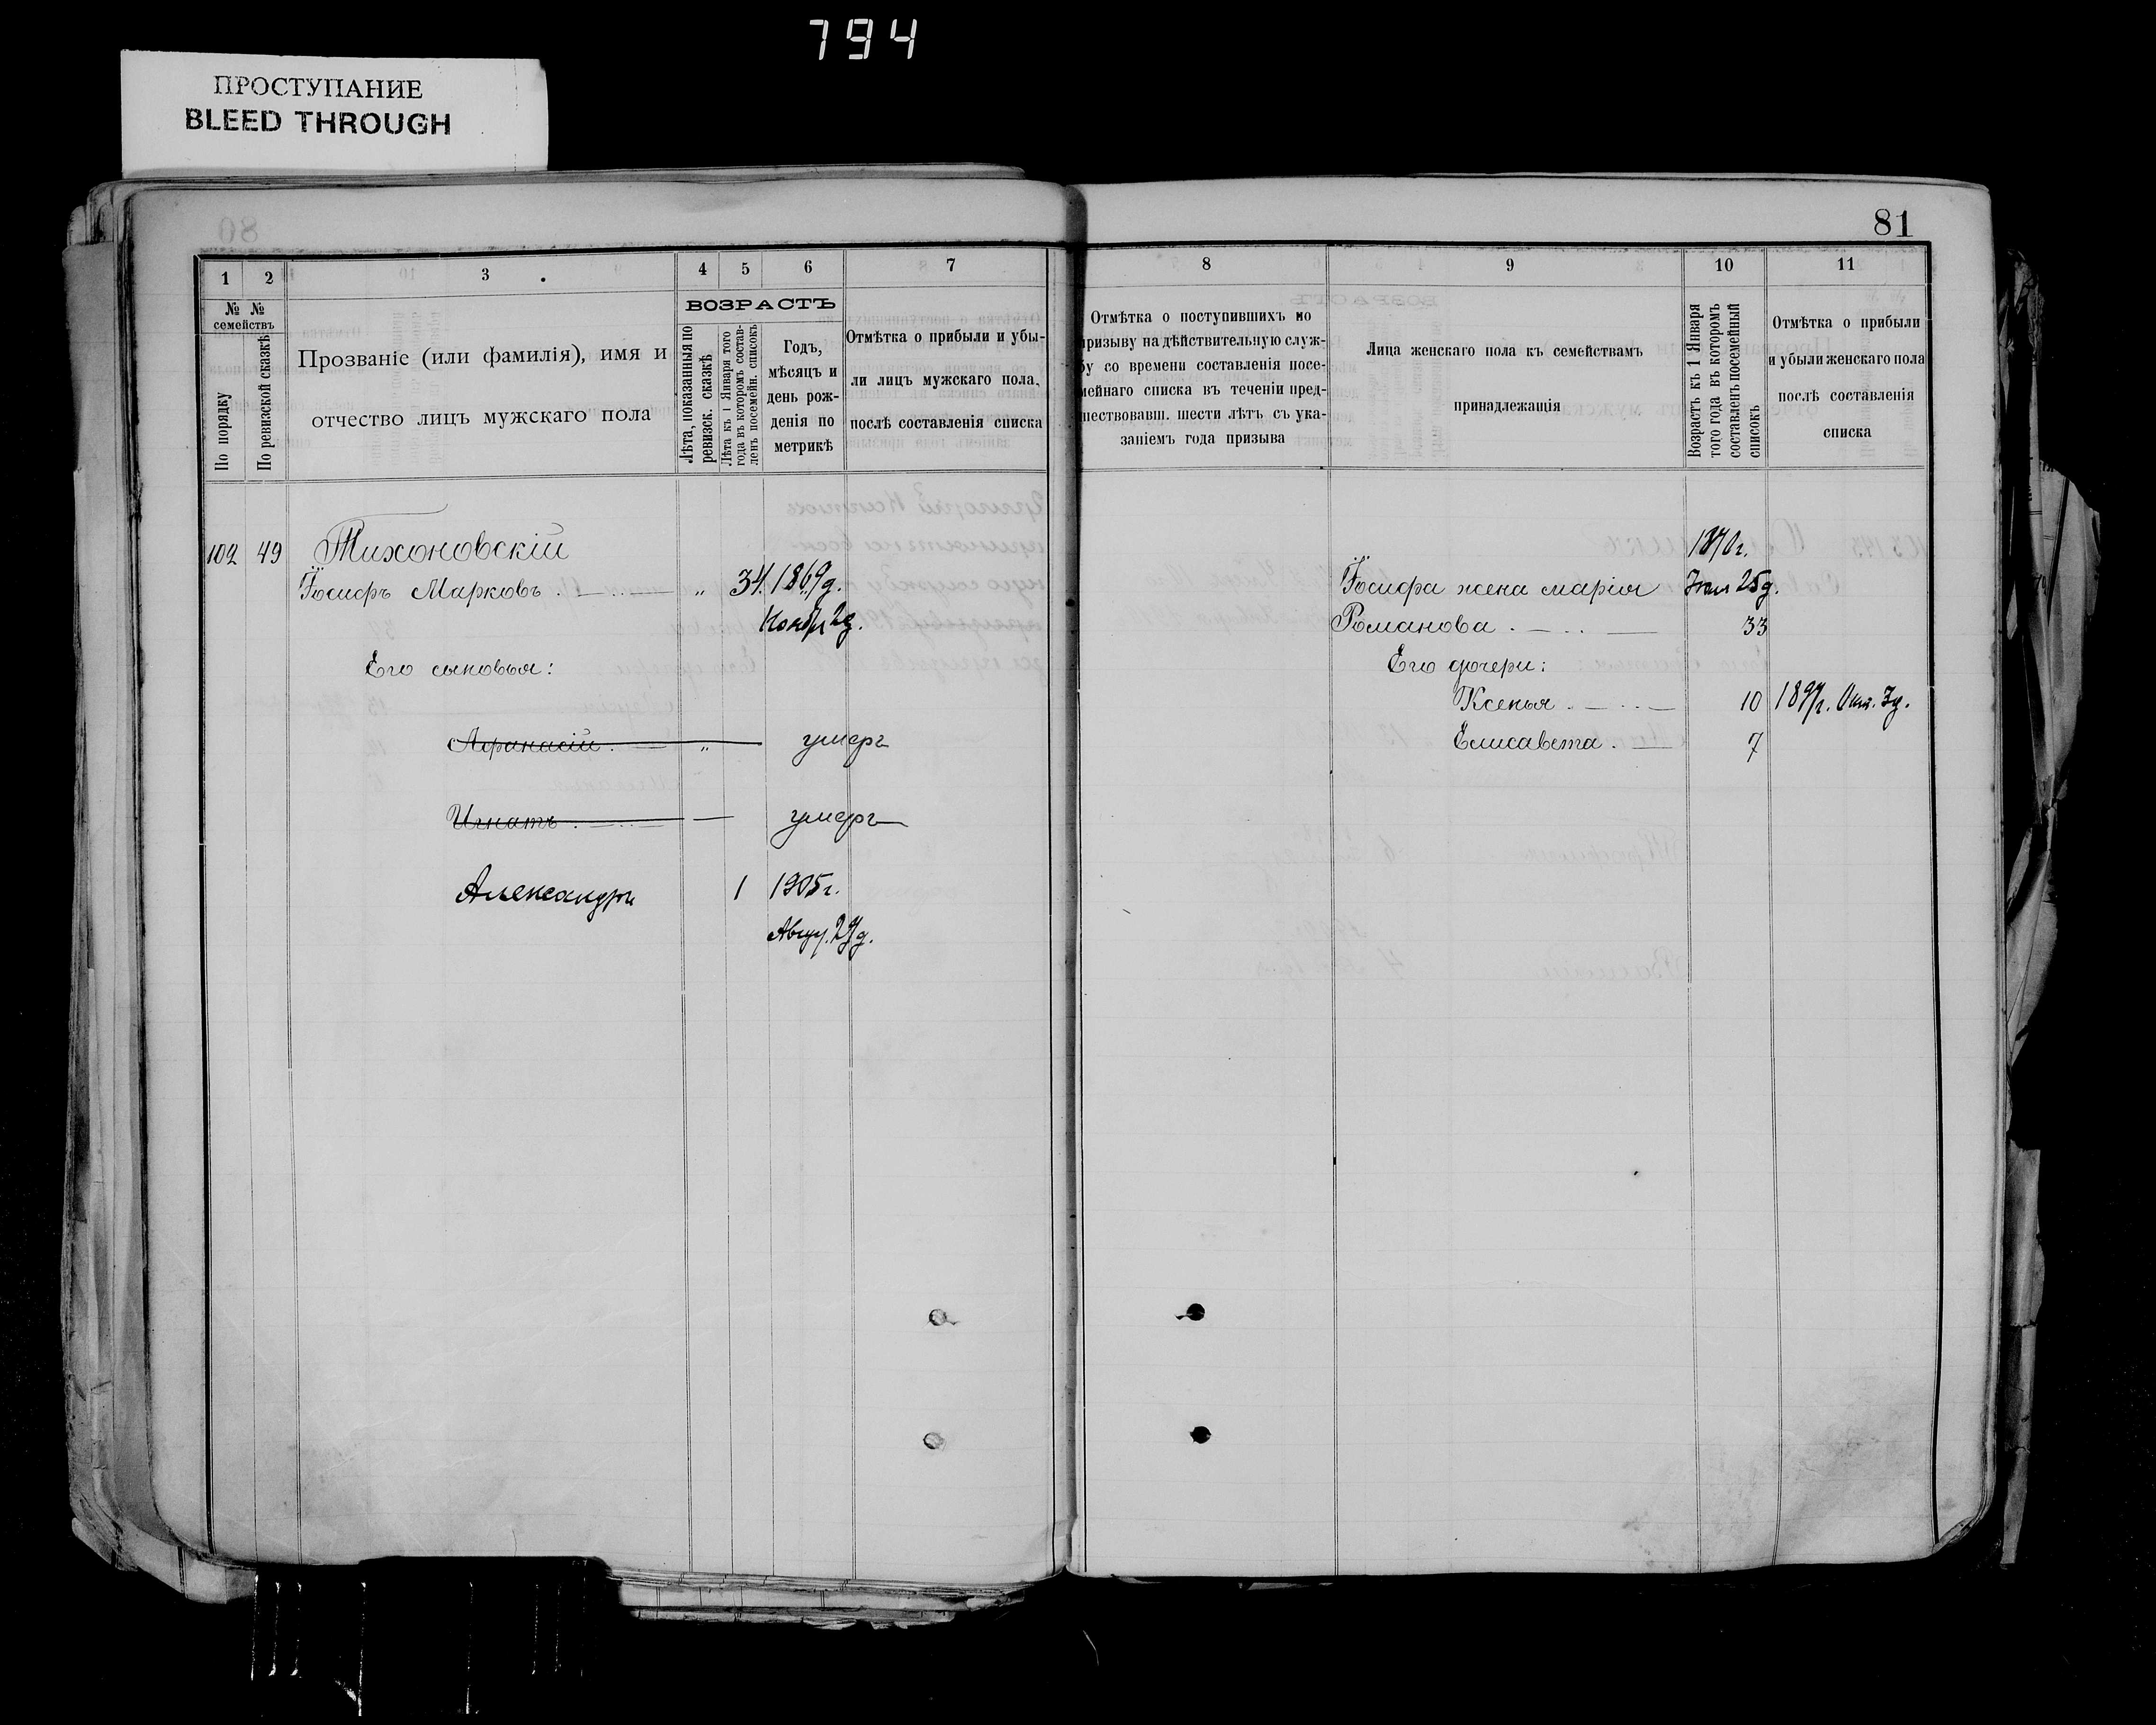 794
ПРОСТУПАНИЕ
BLEED THROUGH
81
1 2 3 4 5 6 7
№ № семействъ
По порядку
По ревизской сказкѣ
Прозваніе (или фамилія), имя и
отчество лицъ мужскаго пола
ВОЗРАСТЪ
Лѣта, показанныя по
ревизск. сказкѣ
Лѣта къ 1 Января того
года въ которомъ состав-
ленъ посемейн. списокъ
Годъ,
мѣсяцъ и
день рож-
денія по
метрикѣ
Отмѣтка о прибыли и убы-
ли лицъ мужскаго пола,
послѣ составленія списка
102 49 Тихоновскій
Іосифъ Марковъ „ 34. 1869г.
Ноябр 2д.
Его сыновья:
Афанасій „ умеръ
Игнатъ умеръ
Александръ 1 1905г.
Авгус. 27д.
8 9 10 11
Отмѣтка о поступившихъ по
призыву на дѣйствительную служ-
бу со времени составленія посе-
мейнаго списка въ теченіи пред-
шествовавш. шести лѣтъ съ ука-
заніемъ года призыва
Лица женскаго пола къ семействамъ
принадлежащія
Возрастъ къ 1 Января
того года въ которомъ
составленъ посемейный
списокъ
Отмѣтка о прибыли
и убыли женскаго пола
послѣ составленія
списка
1870г.
Іосифа жена марія 25д.
Романова 33
Его дочери:
Ксенья 10 1897г. Окт. 3д.
Елисавета 7